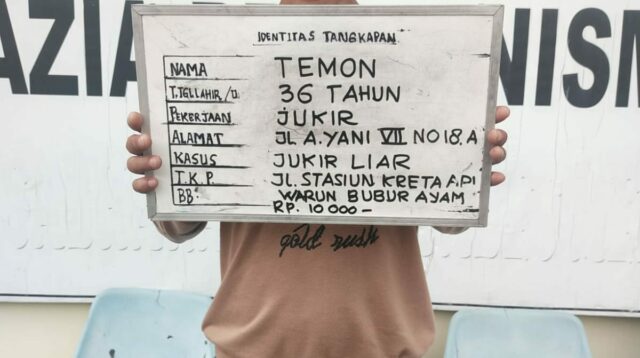 AZIA
NISM
IDENTITAS TANGKAPAN
NAMA TEMON
T.TGLLAHIR/U 36 TAHUN
PEKERJAAN JUKIR
ALAMAT JL A.YANI VII NO 18.A
KASUS JUKIR LIAR
T.K.P. JL.STASIUN KRETA API
BB. WARUN BUBUR AYAM
RP. 10 000 -
gold rush